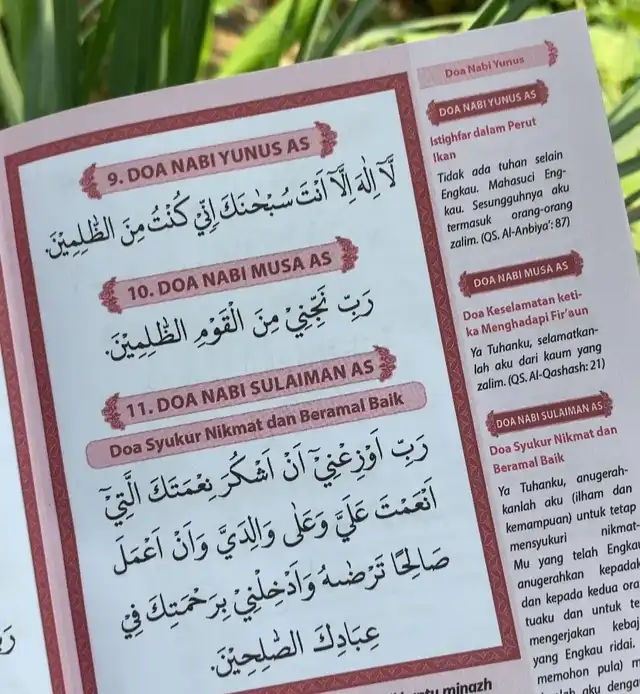 9. DOA NABI YUNUS AS
لَّآ اِلٰهَ اِلَّآ اَنْتَ سُبْحٰنَكَ اِنِّيْ كُنْتُ مِنَ الظّٰلِمِيْنَ.
10. DOA NABI MUSA AS
رَبِّ نَجِّنِيْ مِنَ الْقَوْمِ الظّٰلِمِيْنَ.
11. DOA NABI SULAIMAN AS
Doa Syukur Nikmat dan Beramal Baik
رَبِّ اَوْزِعْنِيْٓ اَنْ اَشْكُرَ نِعْمَتَكَ الَّتِيْٓ
اَنْعَمْتَ عَلَيَّ وَعَلٰى وَالِدَيَّ وَاَنْ اَعْمَلَ
صَالِحًا تَرْضٰىهُ وَاَدْخِلْنِيْ بِرَحْمَتِكَ فِيْ
عِبَادِكَ الصّٰلِحِيْنَ.
Doa Nabi Yunus
DOA NABI YUNUS AS
Istighfar dalam Perut
Ikan
Tidak ada tuhan selain
Engkau. Mahasuci Eng-
kau. Sesungguhnya aku
termasuk orang-orang
zalim. (QS. Al-Anbiya': 87)
DOA NABI MUSA AS
Doa Keselamatan keti-
ka Menghadapi Fir'aun
Ya Tuhanku, selamatkan-
lah aku dari kaum yang
zalim. (QS. Al-Qashash: 21)
DOA NABI SULAIMAN AS
Doa Syukur Nikmat dan
Beramal Baik
Ya Tuhanku, anugerah-
kanlah aku (ilham dan
kemampuan) untuk tetap
mensyukuri nikmat-
Mu yang telah Engkau
anugerahkan kepadak
dan kepada kedua ora
tuaku dan untuk te
mengerjakan kebaj
yang Engkau ridai.
memohon pula) m
lah aku denga